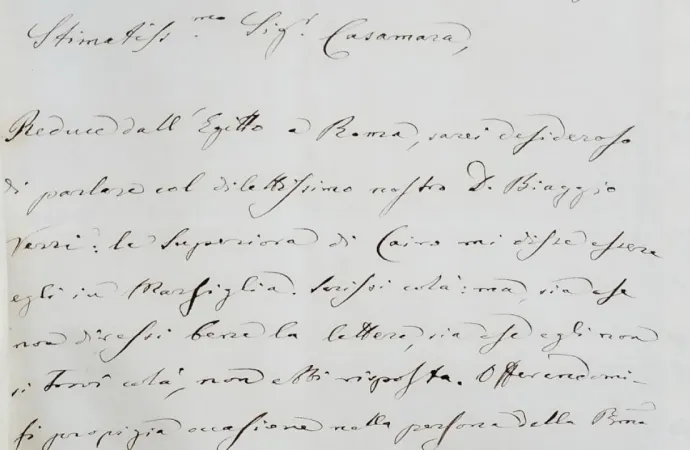 Stimatiss.mo Sig.r Casamara,
Reduce dall'Egitto a Roma, sarei desideroso
di parlare col dilettissimo nostro D. Biaggio
Verri: la Superiora di Cairo mi disse essere
egli in Marsiglia. Scrissi colà: ma, sia che
non diressi bene la lettera, sia che egli non
si trovi colà, non ebbi risposta. Offerendomi-
si propizia occasione nella persona della